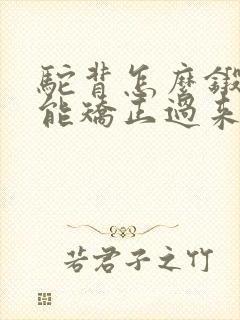 駝背怎麼鍛
能矯正過來
若君子之竹